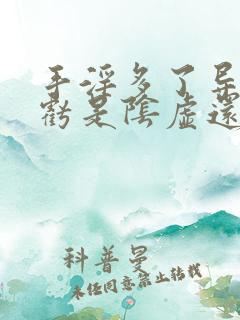 手淫多了导
虧是陰虛還
科普曼
未经同意禁止转载